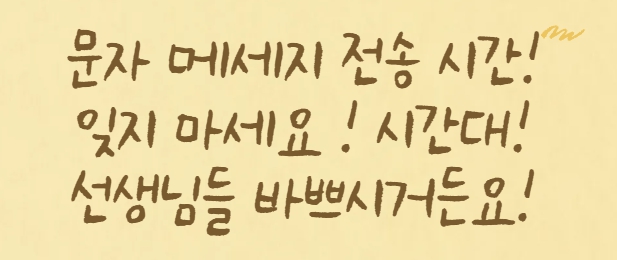 문자 메세지 전송 시간!
잊지 마세요! 시간대!
선생님들 바쁘시거든요!